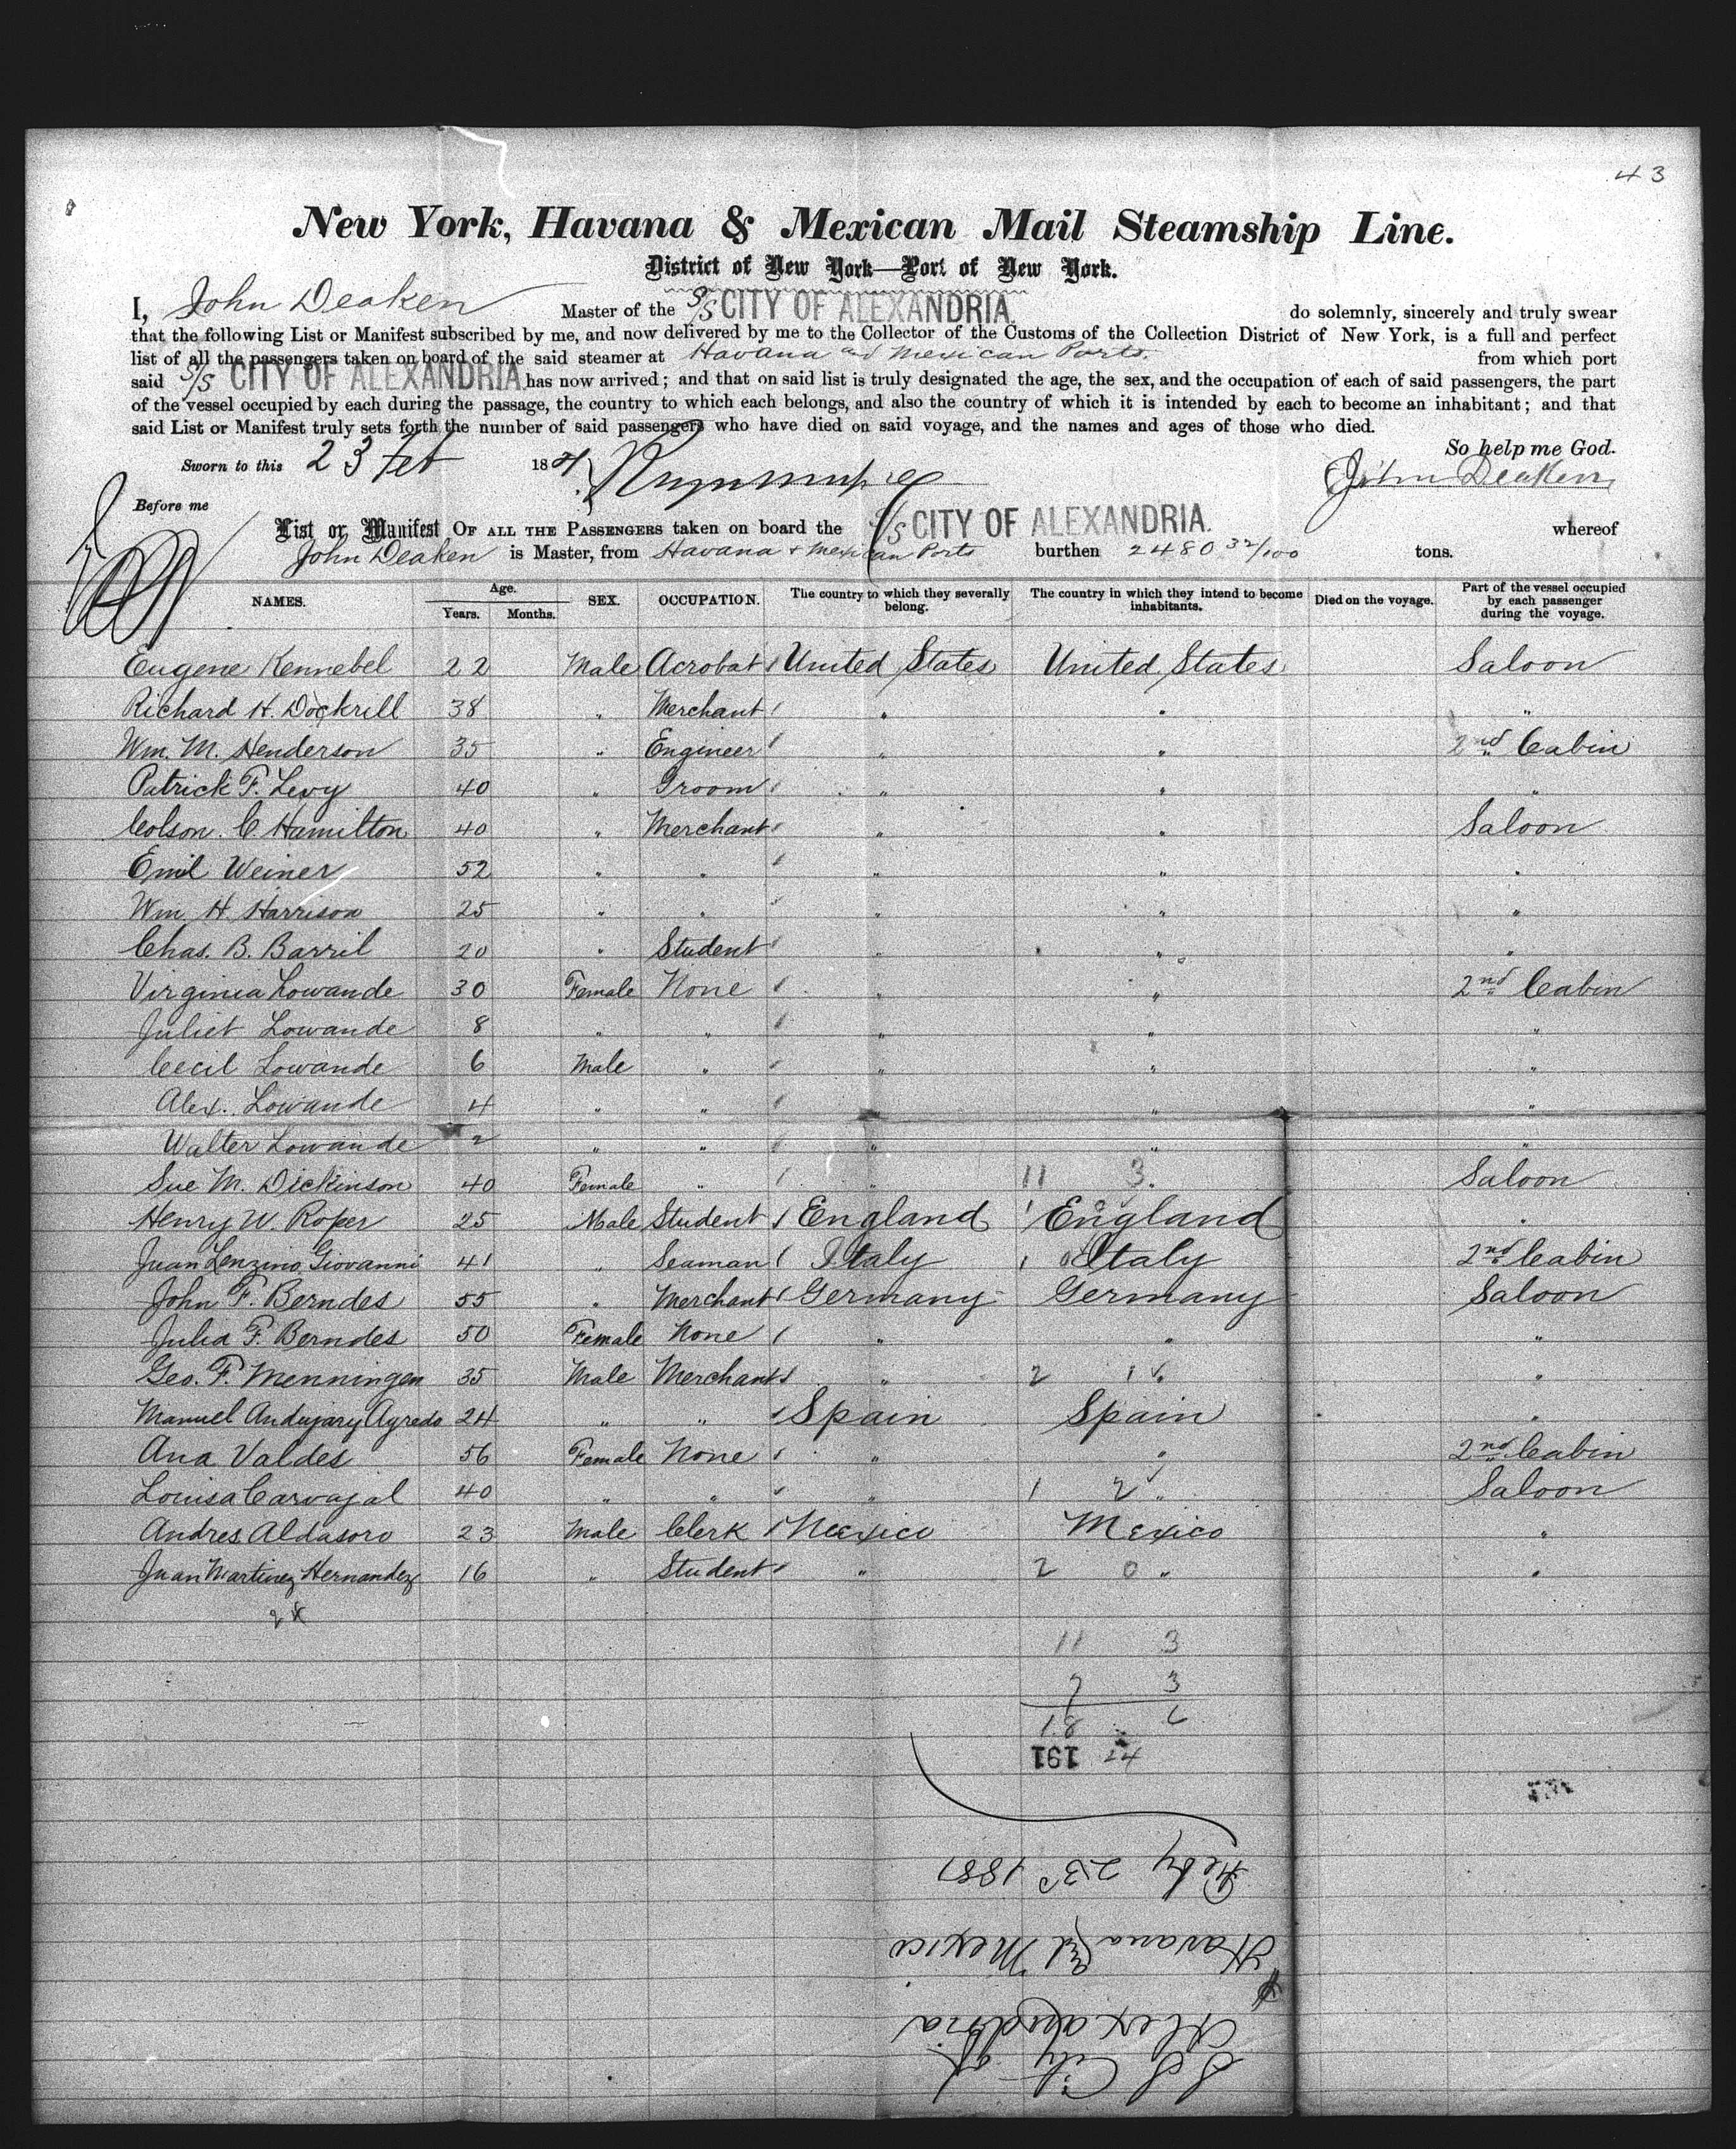 43
New York, Havana & Mexican Mail Steamship Line.
District of New York—Port of New York.
I, John Deaken Master of the S/S CITY OF ALEXANDRIA. do solemnly, sincerely and truly swear
that the following List or Manifest subscribed by me, and now delivered by me to the Collector of the Customs of the Collection District of New York, is a full and perfect
list of all the passengers taken on board of the said steamer at Havana and Mexican Ports. from which port
said S/S CITY OF ALEXANDRIA has now arrived; and that on said list is truly designated the age, the sex, and the occupation of each of said passengers, the part
of the vessel occupied by each during the passage, the country to which each belongs, and also the country of which it is intended by each to become an inhabitant; and that
said List or Manifest truly sets forth the number of said passengers who have died on said voyage, and the names and ages of those who died.
So help me God.
Sworn to this 23 Feb 1881 John Deaken
Before me
List or Manifest OF ALL THE PASSENGERS taken on board the S/S CITY OF ALEXANDRIA. whereof
John Deaken is Master, from Havana & Mexican Ports burthen 2480 32/100 tons.
NAMES. Age. Years. Months. SEX. OCCUPATION. The country to which they severally belong. The country in which they intend to become inhabitants. Died on the voyage. Part of the vessel occupied by each passenger during the voyage.
Eugene Kennebel 22 Male Acrobat United States United States Saloon
Richard H. Dockrill 38 " Merchant " " "
Wm. M. Henderson 35 " Engineer " " 2nd Cabin
Patrick F. Levy 40 " Groom " " "
Colson. C. Hamilton 40 " Merchant " " Saloon
Emil Weiner 52 " " " " "
Wm. H. Harrison 25 " " " " "
Chas. B. Barril 20 " Student " " "
Virginia Lowande 30 Female None " " 2nd Cabin
Juliet Lowande 8 " " " " "
Cecil Lowande 6 Male " " " "
Alex. Lowande 4 " " " " "
Walter Lowande 2 " " " " "
Sue M. Dickinson 40 Female " " 11 3 Saloon
Henry W. Roper 25 Male Student England 1 England "
Juan Lenzino Giovanni 41 " Seaman Italy 1 0 Italy 2nd Cabin
John F. Berndes 55 " Merchant Germany Germany Saloon
Julia F. Berndes 50 Female None " " "
Geo. F. Menningen 35 Male Merchant " 2 1 " "
Manuel Andujary Agredo 24 " " Spain Spain "
Ana Valdes 56 Female None " " 2nd Cabin
Louisa Carvajal 40 " " " 1 2 " Saloon
Andres Aldasoro 23 Male Clerk Mexico Mexico "
Juan Martinez Hernandez 16 " Student " 2 0 " "
24
11 3
7 3
18 6
191 24
Feby 23d 1881
Havana and Mexico
Alexandria
SS City of